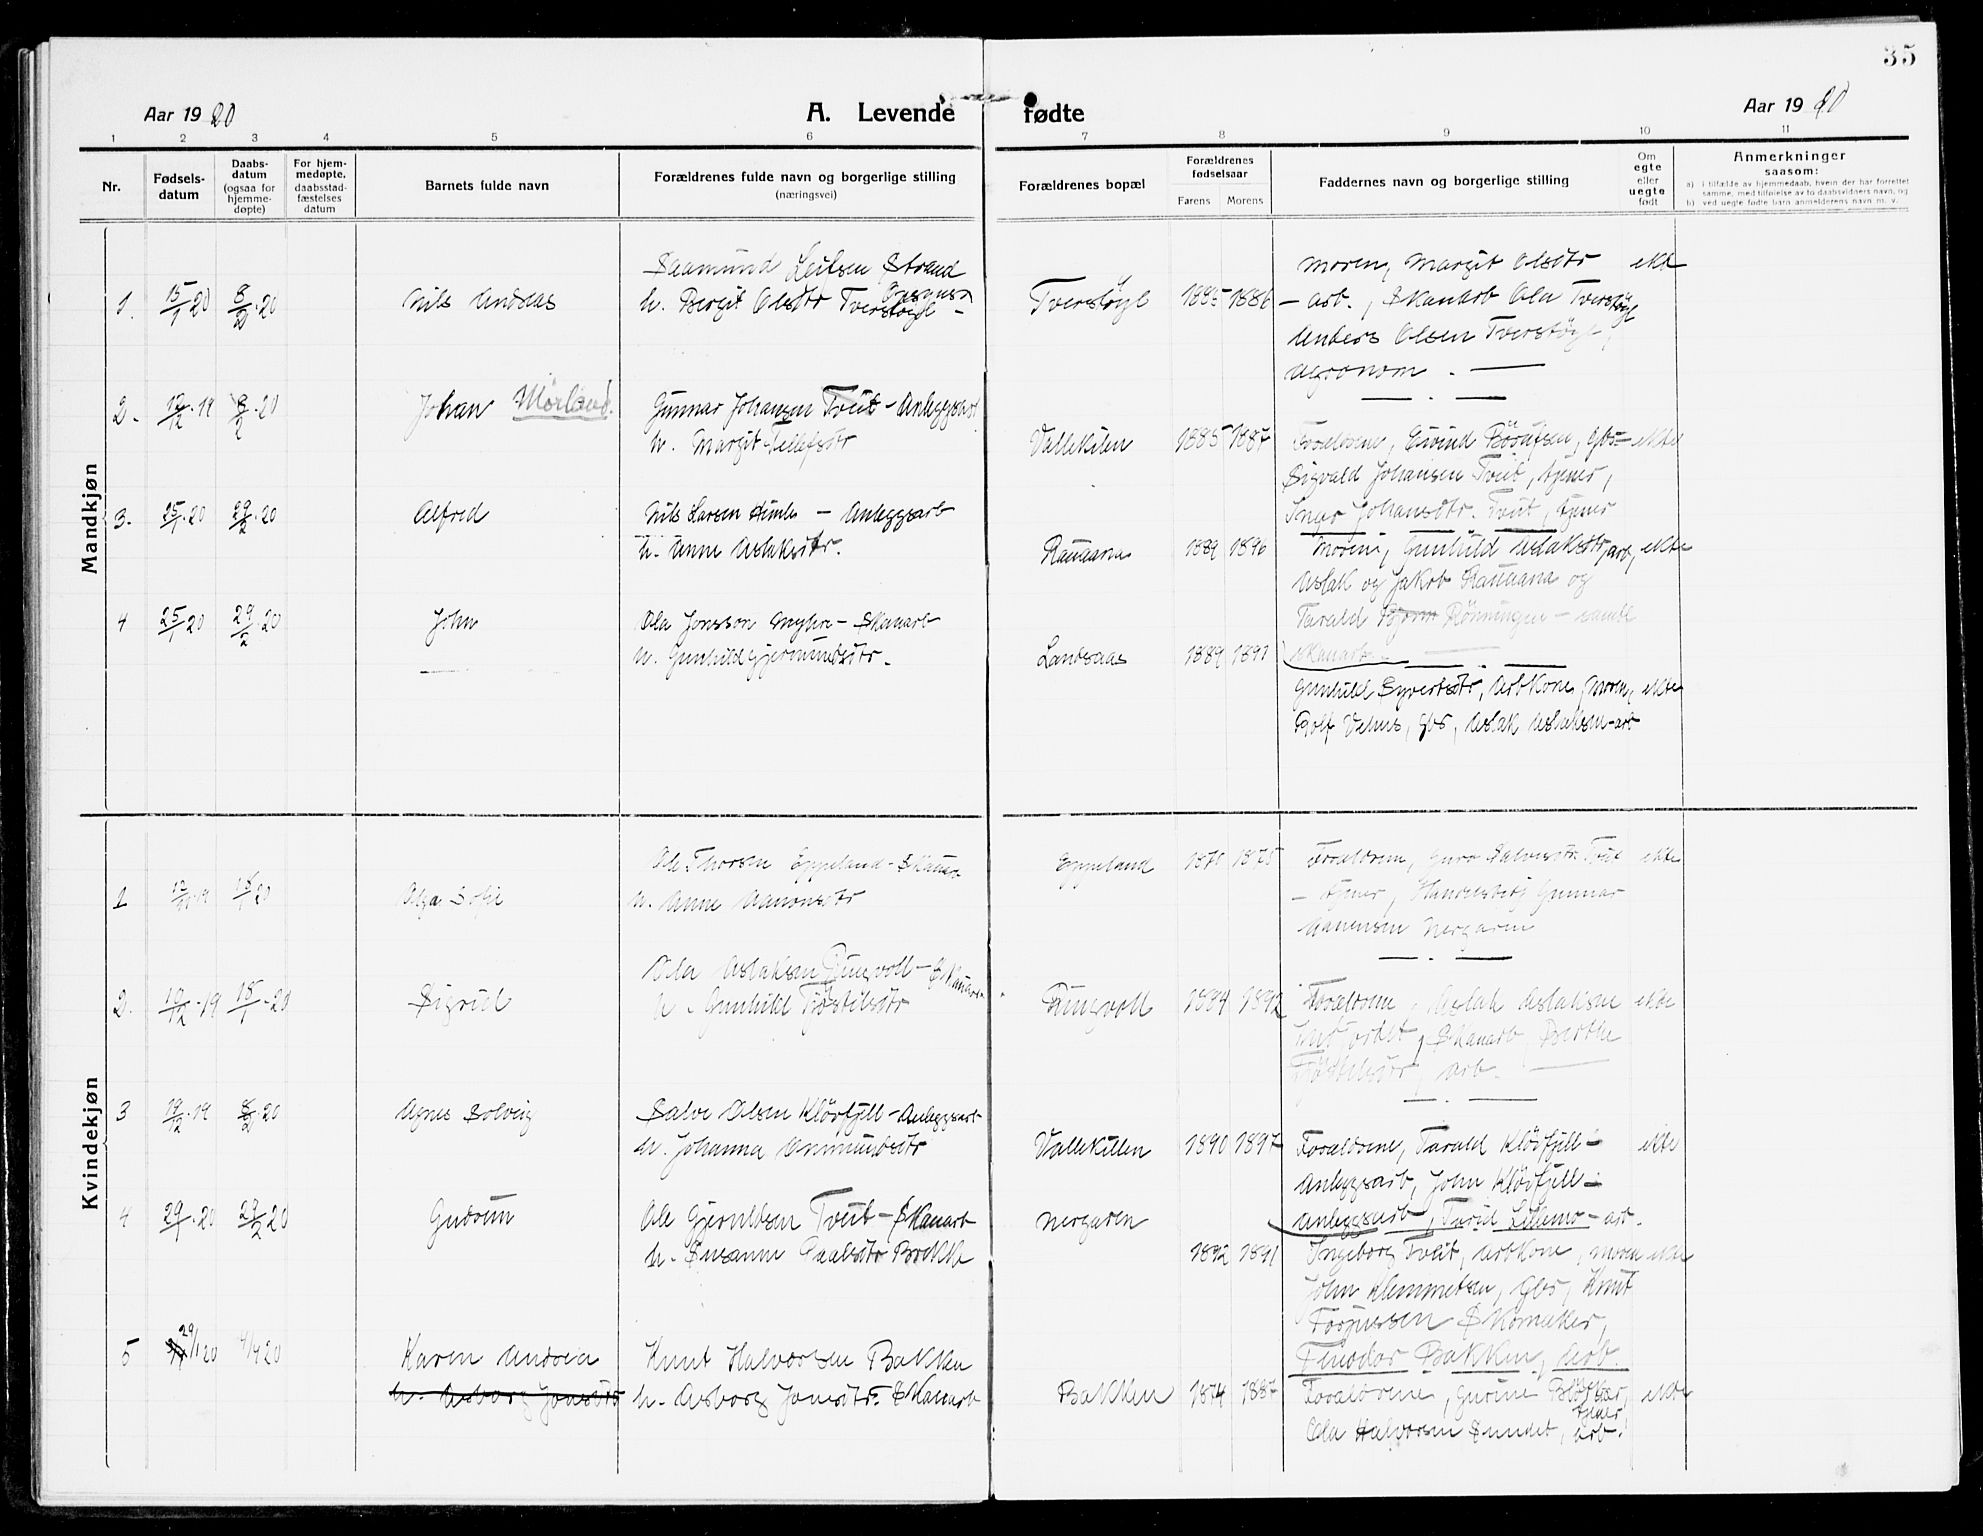 35
Aar 1920
A. Levende
fødte
Aar 1920
1 2 3 4 5 6 7 8 9 10 11
Nr.
Fødsels-
datum
Daabs-
datum
(ogsaa for
hjemme-
døpte)
For hjem-
medøpte,
daabsstad-
fæstelses
datum
Barnets fulde navn
Forældrenes fulde navn og borgerlige stilling
(næringsvei)
Forældrenes bopæl
Forældrenes
fødselsaar
Farens Morens
Faddernes navn og borgerlige stilling
Om
egte
eller
uegte
født
Anmerkninger
saasom:
a) i tilfælde av hjemmedaab, hvem der har forrettet
samme, med tilføielse av to daabsvidners navn, og
b) ved uegte fødte barn anmelderens navn m. v.
Mandkjøn
1. 15/1 20 8/2 20 Nils Andreas
Saamund Leifsen Strand
h. Birgit Olsdtr Tverstøyl -
Tverstøyl 1885 1886
Moren, Margit Olsdtr ekte
- arb., Skauarb Ola Tverstøyl
Anders Olsen Tverstøyl,
agronom. -
2. 12/12 19 8/2 20 Johan Mørland.
Gunnar Johansen Tveit - Anleggsarb
h. Margit Tellefsdtr
Vallekilen 1885 1887
Foreldrene, Eivind Børufsen, gbr - ekte
Sigvald Johansen Tveit, tjener,
Inger Johansdtr. Tveit, tjener
3. 25/1 20 29/2 20 Alfred
Nils Larsen - Anleggsarb
h. Anne Aslaksdtr.
Rauaana 1889 1896
Moren, Gunhild Aslaksdtr, arb, ekte
Aslak og Jakob Rauaana og
Tarald Rönningen - samtl
skauarb.
4 25/1 20 29/2 20 John
Ola Jonsson Myhre - Skauarb
h. Gunhild Gjermundsdtr.
Landsaas 1889 1891
Gunhild Syvertsdtr, Arbkone, Moren, ekte
Rolf Vehus, gbr, Aslak Aslaksen - arb
Kvindekjøn
1 12/ 19 18/1 20 Olga Sofie
Ole Thorsen Eppeland - Skauarb
h. Anne Aanonsdtr
Eppeland 1870 1875
Foreldrene, Guro Salvesdtr. Tveit ekte
- tjener, Handelsbetj Gunnar
Aanensen Nergaren
2. 19/12 19 18/1 20 Sigrid
Ola Aslaksen Ringvoll - Skauarb
h. Gunhild Tjöstilsdtr
Ringvoll 1884 1892
Foreldrene, Aslak Aslaksen ekte
Skauarb, Berthe
Tjöstilsdtr, arb. -
3 19/12 19 8/2 20 Agnes Solveig
Salve Olsen Klövfjell - Anleggsarb
h. Johanna Ommundsdtr
Vallekilen 1890 1897
Foreldrene, Tarald Klövfjell - ekte
Anleggsarb, John Klövfjell -
Anleggsarb, Turid Lillemo - arb.
4 29/1 20 29/2 20 Gudrun
Ole Gjeruldsen Tveit - Skauarb
h. Susanne Paalsdtr Brokke
Nergaren 1892 1891
Ingeborg Tveit, Arbkone, Moren ekte
John Klemmetsen, Gbr, Knut
Torjussen Skomaker,
Theodor Bakken, Arb.
5 29/1 20 4/4 20 Karen Andrea
h. Asborg Jonsdtr
Knut Halvorsen Bakken
h. Asborg Jonsdtr. Skauarb
Bakken 1874 1887
Foreldrene, Gurine ekte
tjener
Ola Halvorsen Sundet, arb.